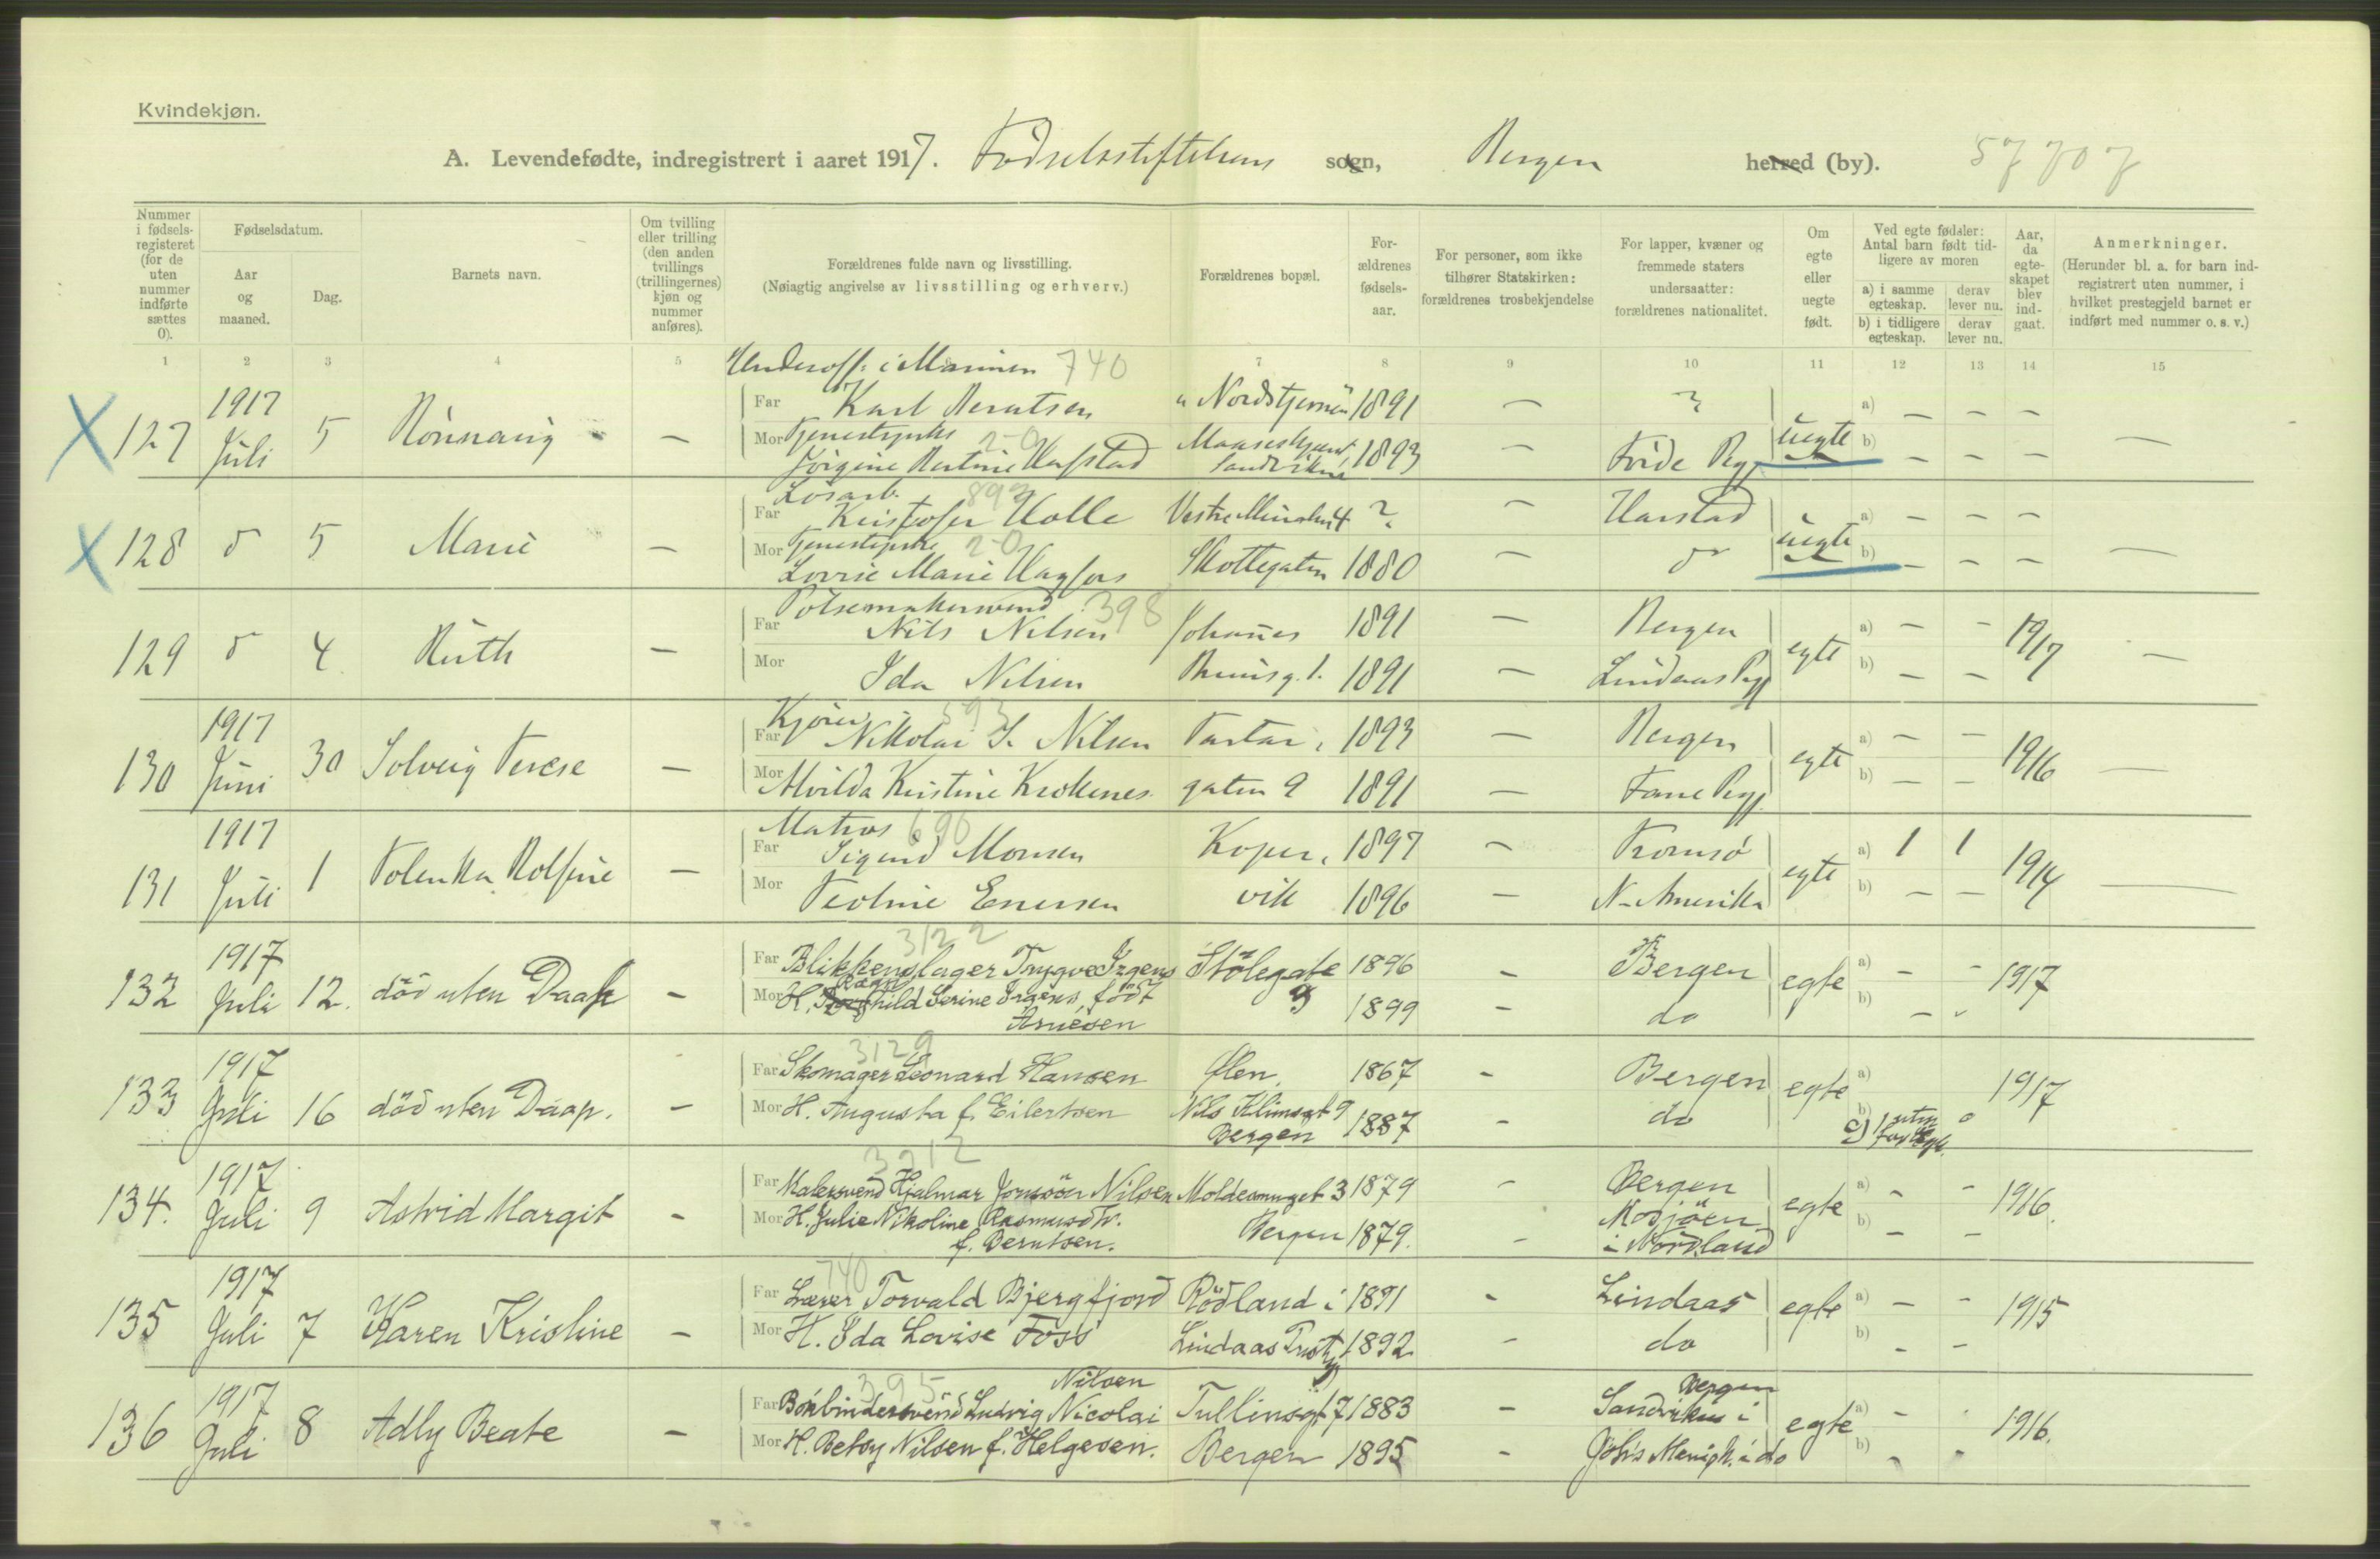 Kvindekjøn.
A. Levendefødte, indregistrert i aaret 1917. Födselsstiftelsens sogn, Bergen herred (by). 57707
Nummer i fødsels-registeret (for de uten nummer indførte sættes 0).
Fødselsdatum.
Aar og maaned.
Dag.
Barnets navn.
Om tvilling eller trilling (den anden tvillings (trillingernes) kjøn og nummer anføres).
Forældrenes fulde navn og livsstilling.
(Nøiagtig angivelse av livsstilling og erhverv.)
Forældrenes bopæl.
For-ældrenes fødsels-aar.
For personer, som ikke tilhører Statskirken: forældrenes trosbekjendelse
For lapper, kvæner og fremmede staters undersaatter: forældrenes nationalitet.
Om egte eller uegte født.
Ved egte fødsler: Antal barn født tid-ligere av moren
a) i samme egteskap. derav lever nu.
b) i tidligere egteskap. derav lever nu.
Aar, da egte-skapet blev ind-gaat.
Anmerkninger.
(Herunder bl. a. for barn ind-registrert uten nummer, i hvilket prestegjeld barnet er indført med nummer o. s. v.)
1 2 3 4 5 7 8 9 10 11 12 13 14 15
Underoff. i Marinen 740
X 127 1917 Juli 5 Rönnaug – Far Karl Berntsen "Nordstjernen" 1891 – ? uegte a) – – –
Mor Tjenestepike 2-0 Jörgine Bertine Hafstad Sandviken 1893 – Förde Pgj b) – – – –
Losarb. 893
X 128 d 5 Marie – Far Kristofer Holle ? – Harstad uegte a) – – –
Mor Tjenestepike 2-0 Lovrie Marie Hagfors Skottegaten 1880 – d b) – – – –
Pölsemakersvend 398
129 d 4 Ruth – Far Nils Nilsen Johannes 1891 – Bergen egte a) – – 1917
Mor Ida Nilsen Bruunsg. 1. 1891 – Lindaas Pgj b) – – –
Kjörer 393
130 1917 Juni 30 Solveig Terese – Far Nikolai S. Nilsen Tartar- 1893 – Bergen egte a) – – 1916
Mor Alvilda Kristine Krokenes gaten 9 1891 – Fane Pgj b) – – –
Matros 690
131 1917 Juli 1 Tolenka Rolfine – Far Sigurd Monsen Koper- 1897 – Tromsö egte a) 1 1 1914
Mor Teoline Enersen vik 1896 – N-Amerika b) – – –
3122
132 1917 Juli 12. död uten Daap – Far Blikkenslager Trygve Irgens Stölegate 1896 – Bergen egte a) – – 1917
Mor H. Ragnhild Serine Irgens, född Arnesen 9 1899 – do b) – –
3129
133 1917 Juli 16 död uten Daap. – Far Skomager Leonard Hansen Ölen 1867 – Bergen egte a) 1917
Mor H. Augusta f. Eilertsen Nils Klimsgt 9 Bergen 1887 – do b) c) 1 uten for egt. 0
3212
134. 1917 Juli 9 Astrid Margit – Far Malersvend Hjalmar Jonssön Nilsen Moldesmuget 3 1879 – Bergen egte a) – – 1916.
Mor H. Julie Nikoline Rasmusdtr. f. Berntsen. Bergen 1879. – Mosjöen i Nordland b) – –
740
135 1917 Juli 7 Karen Kristine – Far Lærer Torvald Bjergfjord Rödland i 1891 – Lindaas egte a) – – 1915
Mor H. Ida Lovise Foss Lindaas Prstgj 1892 – do b) – –
395 Nilsen
136 1917 Juli 8 Adly Beate – Far Bokbindersvend Ludvig Nicolai Tullinsgt 7 1883 – Sandviken i Bergen egte a) – – 1916.
Mor H. Betsy Nilsen f. Helgesen. Bergen 1895 – Johs Menigh. i do b) – –